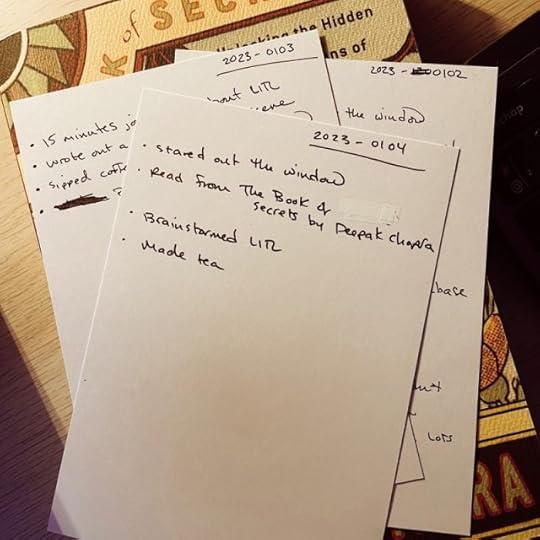 of SECR
Unlocking the Hidden
ns of
2023-0103
15 minutes jo
about LITL
wrote out a
sipped coff
2023-0102
the window
base
Lots
2023-0104
• Stared out the window
• Read from The Book of
Secrets by Deepak Chopra
• Brainstormed LITL
• Made tea
RA